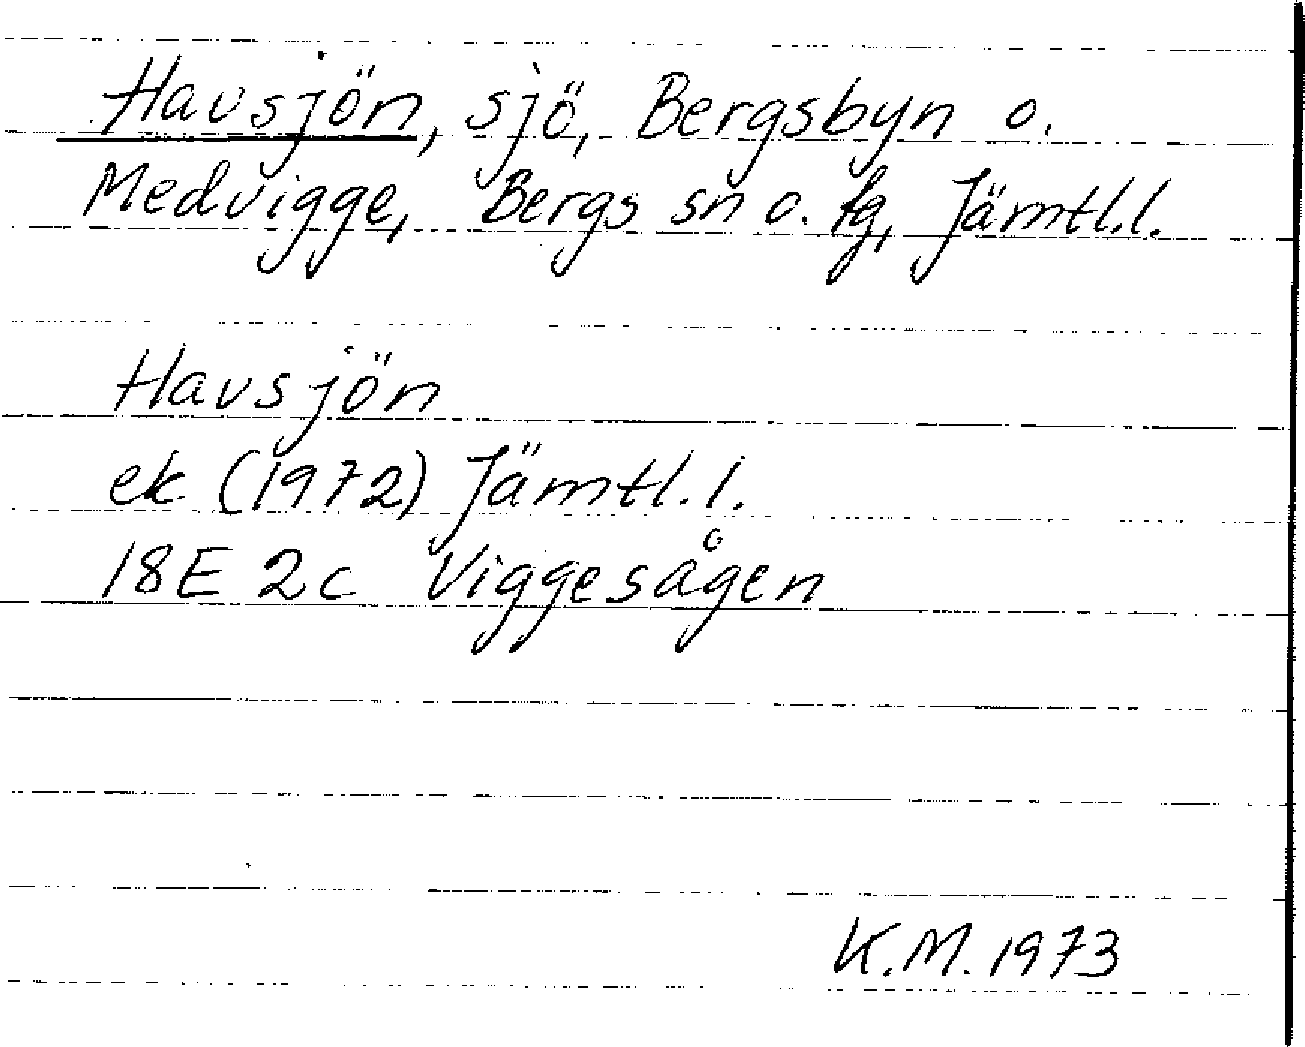 Havsjön, sjö, Bergsbyn o.
Medvigge, Bergs sn o. tg, Jämtl.l.
Havsjön
ek (1972) Jämtl. l.
18E 2c Viggesågen
K.M. 1973